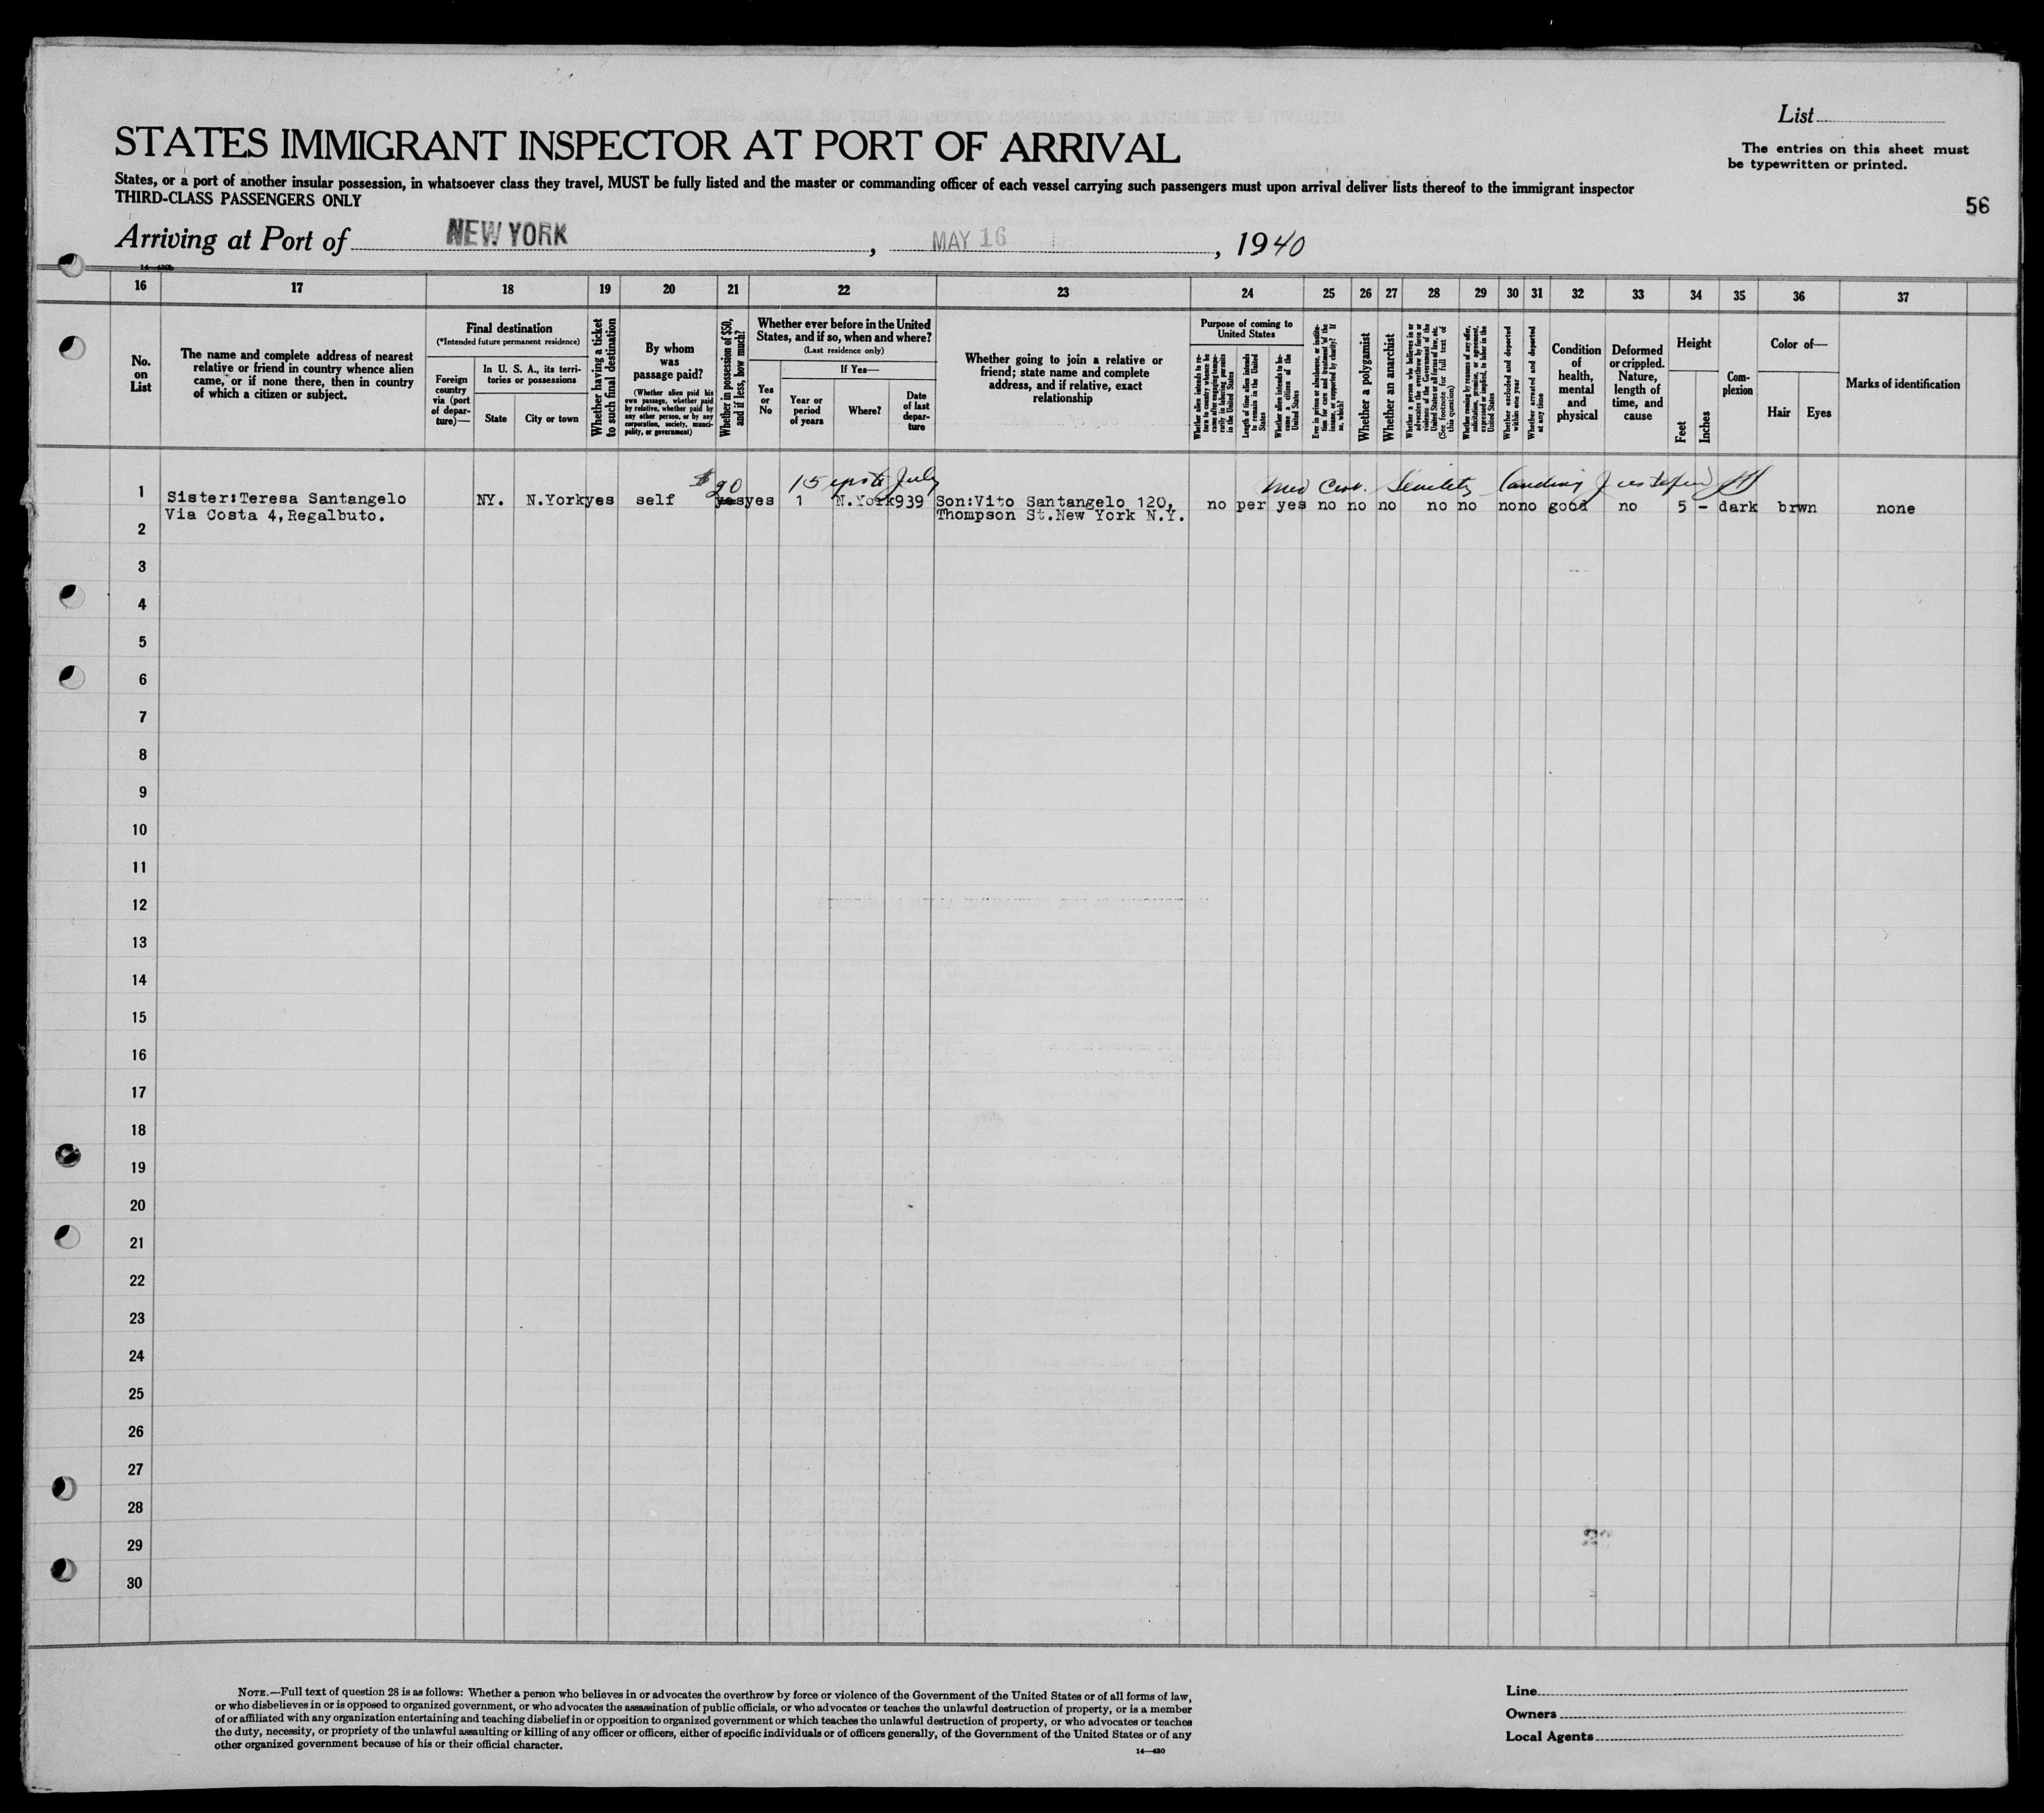 List
The entries on this sheet must
be typewritten or printed.
STATES IMMIGRANT INSPECTOR AT PORT OF ARRIVAL
States, or a port of another insular possession, in whatsoever class they travel, MUST be fully listed and the master or commanding officer of each vessel carrying such passengers must upon arrival deliver lists thereof to the immigrant inspector
THIRD-CLASS PASSENGERS ONLY
56
Arriving at Port of NEW YORK, MAY 16, 1940
14—430b
16 17 18 19 20 21 22 23 24 25 26 27 28 29 30 31 32 33 34 35 36 37
No.
on
List
The name and complete address of nearest
relative or friend in country whence alien
came, or if none there, then in country
of which a citizen or subject.
Final destination
(*Intended future permanent residence)
Foreign
country
via (port
of depar-
ture)—
In U. S. A., its terri-
tories or possessions
State
City or town
Whether having a ticket
to such final destination
By whom
was
passage paid?
(Whether alien paid his
own passage, whether paid
by relative, whether paid by
any other person, or by any
corporation, society, munci-
pality, or government)
Whether in possession of $50,
and if less, how much?
Whether ever before in the United
States, and if so, when and where?
(Last residence only)
Yes
or
No
If Yes—
Year or
period
of years
Where?
Date
of last
depar-
ture
Whether going to join a relative or
friend; state name and complete
address, and if relative, exact
relationship
Purpose of coming to
United States
Whether alien intends to re-
turn to country whence he
came after engaging tempo-
rarily in laboring pursuits
in the United States
Length of time alien intends
to remain in the United
States
Whether alien intends to be-
come a citizen of the
United States
Ever in prison or almshouse, or institu-
tion for care and treatment of the
insane, or supported by charity? If
so, which?
Whether a polygamist
Whether an anarchist
Whether a person who believes in or
advocates the overthrow by force or
violence of the Government of the
United States or all forms of law, etc.
(See footnote for full text of
this question)
Whether coming by reasons of any offer,
solicitation, promise, or agreement,
expressed or implied, to labor in the
United States
Whether excluded and deported
within one year
Whether arrested and deported
at any time
Condition
of
health,
mental
and
physical
Deformed
or crippled.
Nature,
length of
time, and
cause
Height
Feet
Inches
Com-
plexion
Color of—
Hair Eyes
Marks of identification
$20 15 July
Med Cert. Senility Landing
1 Sister:Teresa Santangelo NY. N.York yes self yes yes 1 N.York 939 Son:Vito Santangelo 120, no per yes no no no no no no no good no 5 - dark brwn none
Via Costa 4,Regalbuto. Thompson St.New York N.Y.
2
3
4
5
6
7
8
9
10
11
12
13
14
15
16
17
18
19
20
21
22
23
24
25
26
27
28
29
30
NOTE.—Full text of question 28 is as follows: Whether a person who believes in or advocates the overthrow by force or violence of the Government of the United States or of all forms of law,
or who disbelieves in or is opposed to organized government, or who advocates the assassination of public officials, or who advocates or teaches the unlawful destruction of property, or is a member
of or affiliated with any organization entertaining and teaching disbelief in or opposition to organized government or which teaches the unlawful destruction of property, or who advocates or teaches
the duty, necessity, or propriety of the unlawful assaulting or killing of any officer or officers, either of specific individuals or of officers generally, of the Government of the United States or of any
other organized government because of his or their official character.
14—430
Line
Owners
Local Agents